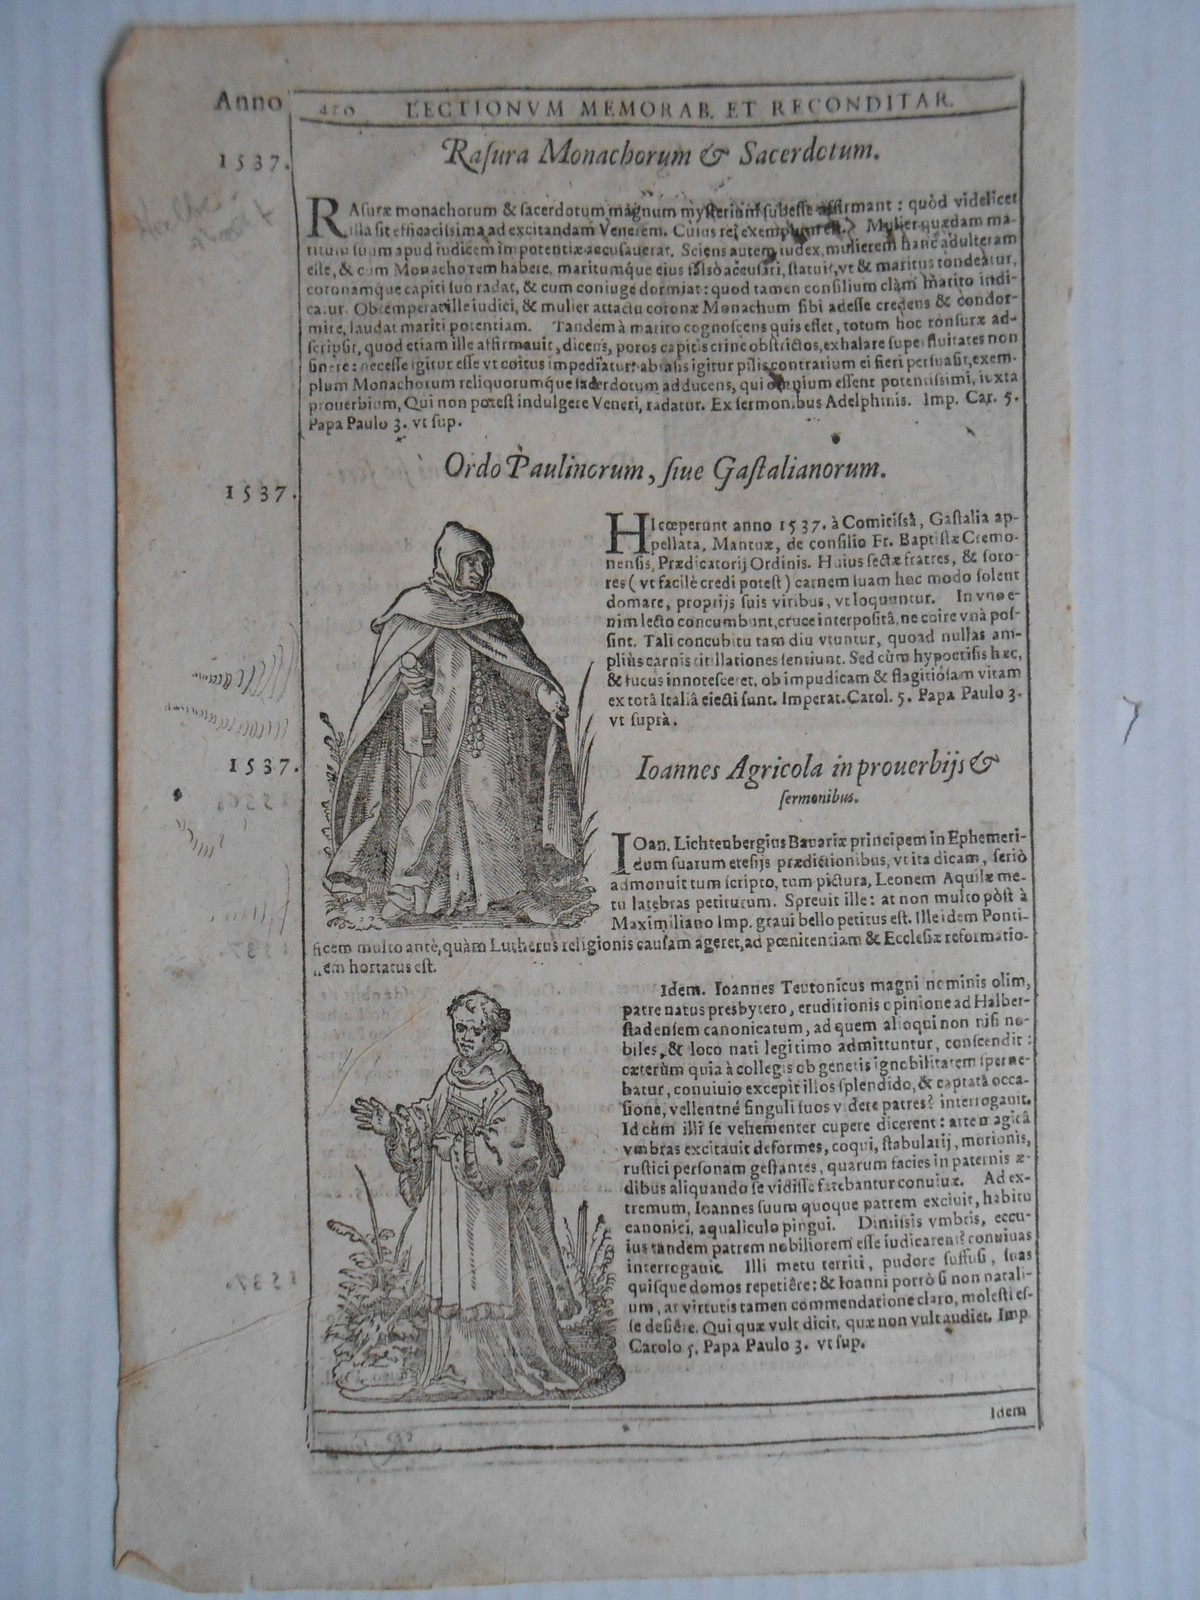 Anno
LECTIONVM MEMORAB. ET RECONDITAR.
1537.
Rasura Monachorum & Sacerdotum.
RAsuræ monachorum & sacerdotum magnum mysterium subesse affirmant: quòd videlicet
illa sit efficacissima ad excitandam Venerem. Cuius rei exemplum est. Mulier quædam ma-
ritum suum apud iudicem impotentiæ accusauerat. Sciens autem iudex, mulierem hanc adulteram
esse, & cum Monachorem habere, maritumque eius falsò accusari, statuit, vt & maritus tondeatur,
coronamque capiti suo radat, & cum coniuge dormiat: quod tamen consilium clàm marito indi-
catur. Obtemperat ille iudici, & mulier attactu coronæ Monachum sibi adesse credens & condor-
mire, laudat mariti potentiam. Tandem à marito cognoscens quis esset, totum hoc tonsuræ ad-
scripsit, quod etiam ille affirmauit, dicens, poros capitis crine obstrictos, exhalare superfluitates non
sinere: necesse igitur esse vt coitus impediatur: abrasis igitur pilis contrarium ei fieri persuasit, exem-
plum Monachorum reliquorumque sacerdotum adducens, qui omnium essent potentissimi, iuxta
prouerbium, Qui non potest indulgere Veneri, radatur. Ex sermonibus Adelphinis. Imp. Car. 5.
Papa Paulo 3. vt sup.
Ordo Paulinorum, siue Gastalianorum.
1537.
HI cœperunt anno 1537. à Comitissâ, Gastalia ap-
pellata, Mantuæ, de consilio Fr. Baptistæ Cremo-
nensis, Prædicatorij Ordinis. Huius sectæ fratres, & soro-
res (vt facilè credi potest) carnem suam hoc modo solent
domare, proprijs suis viribus, vt loquuntur. In vno e-
nim lecto concumbunt, cruce interpositâ, ne coire vnà pos-
sint. Tali concubitu tam diu vtuntur, quoad nullas am-
pliùs carnis titillationes sentiunt. Sed cùm hypocrisis hæc,
& fucus innotesceret, ob impudicam & flagitiosam vitam
ex totâ Italiâ eiecti sunt. Imperat. Carol. 5. Papa Paulo 3.
vt suprà.
1537.
Ioannes Agricola in prouerbijs &
sermonibus.
IOan. Lichtenbergius Bauariæ principem in Ephemeri-
dum suarum etesijs prædictionibus, vt ita dicam, seriò
admonuit tum scripto, tum pictura, Leonem Aquilæ me-
tu latebras petiturum. Spreuit ille: at non multo pòst à
Maximiliano Imp. graui bello petitus est. Ille idem Ponti-
ficem multo antè, quàm Lutherus religionis causam ageret, ad pœnitentiam & Ecclesiæ reformatio-
nem hortatus est.
Idem. Ioannes Teutonicus magni nominis olim,
patre natus presbytero, eruditionis opinione ad Halber-
stadensem canonicatum, ad quem alioqui non nisi no-
biles, & loco nati legitimo admittuntur, conscendit:
cæterùm quia à collegis ob generis ignobilitatem sperne-
batur, conuiuio excepit illos splendido, & captatâ occa-
sione, vellentné singuli suos videre patres? interrogauit.
Id cùm illi se vehementer cupere dicerent: arte magicâ
vmbras excitauit deformes, coqui, stabularij, morionis,
rustici personam gestantes, quarum facies in paternis æ-
dibus aliquando se vidisse fatebantur conuiuæ. Ad ex-
tremum, Ioannes suum quoque patrem exciuit, habitu
canonici, aqualiculo pingui. Dimissis vmbris, eccu-
ius tandem patrem nobiliorem esse iudicarent? conuiuas
interrogauit. Illi metu territi, pudore suffusi, suas
quisque domos repetiêre: & Ioanni porrò si non natali-
um, at virtutis tamen commendatione claro, molesti es-
se desiêre. Qui quæ vult dicit, quæ non vult audiet. Imp
Carolo 5. Papa Paulo 3. vt sup.
Idem